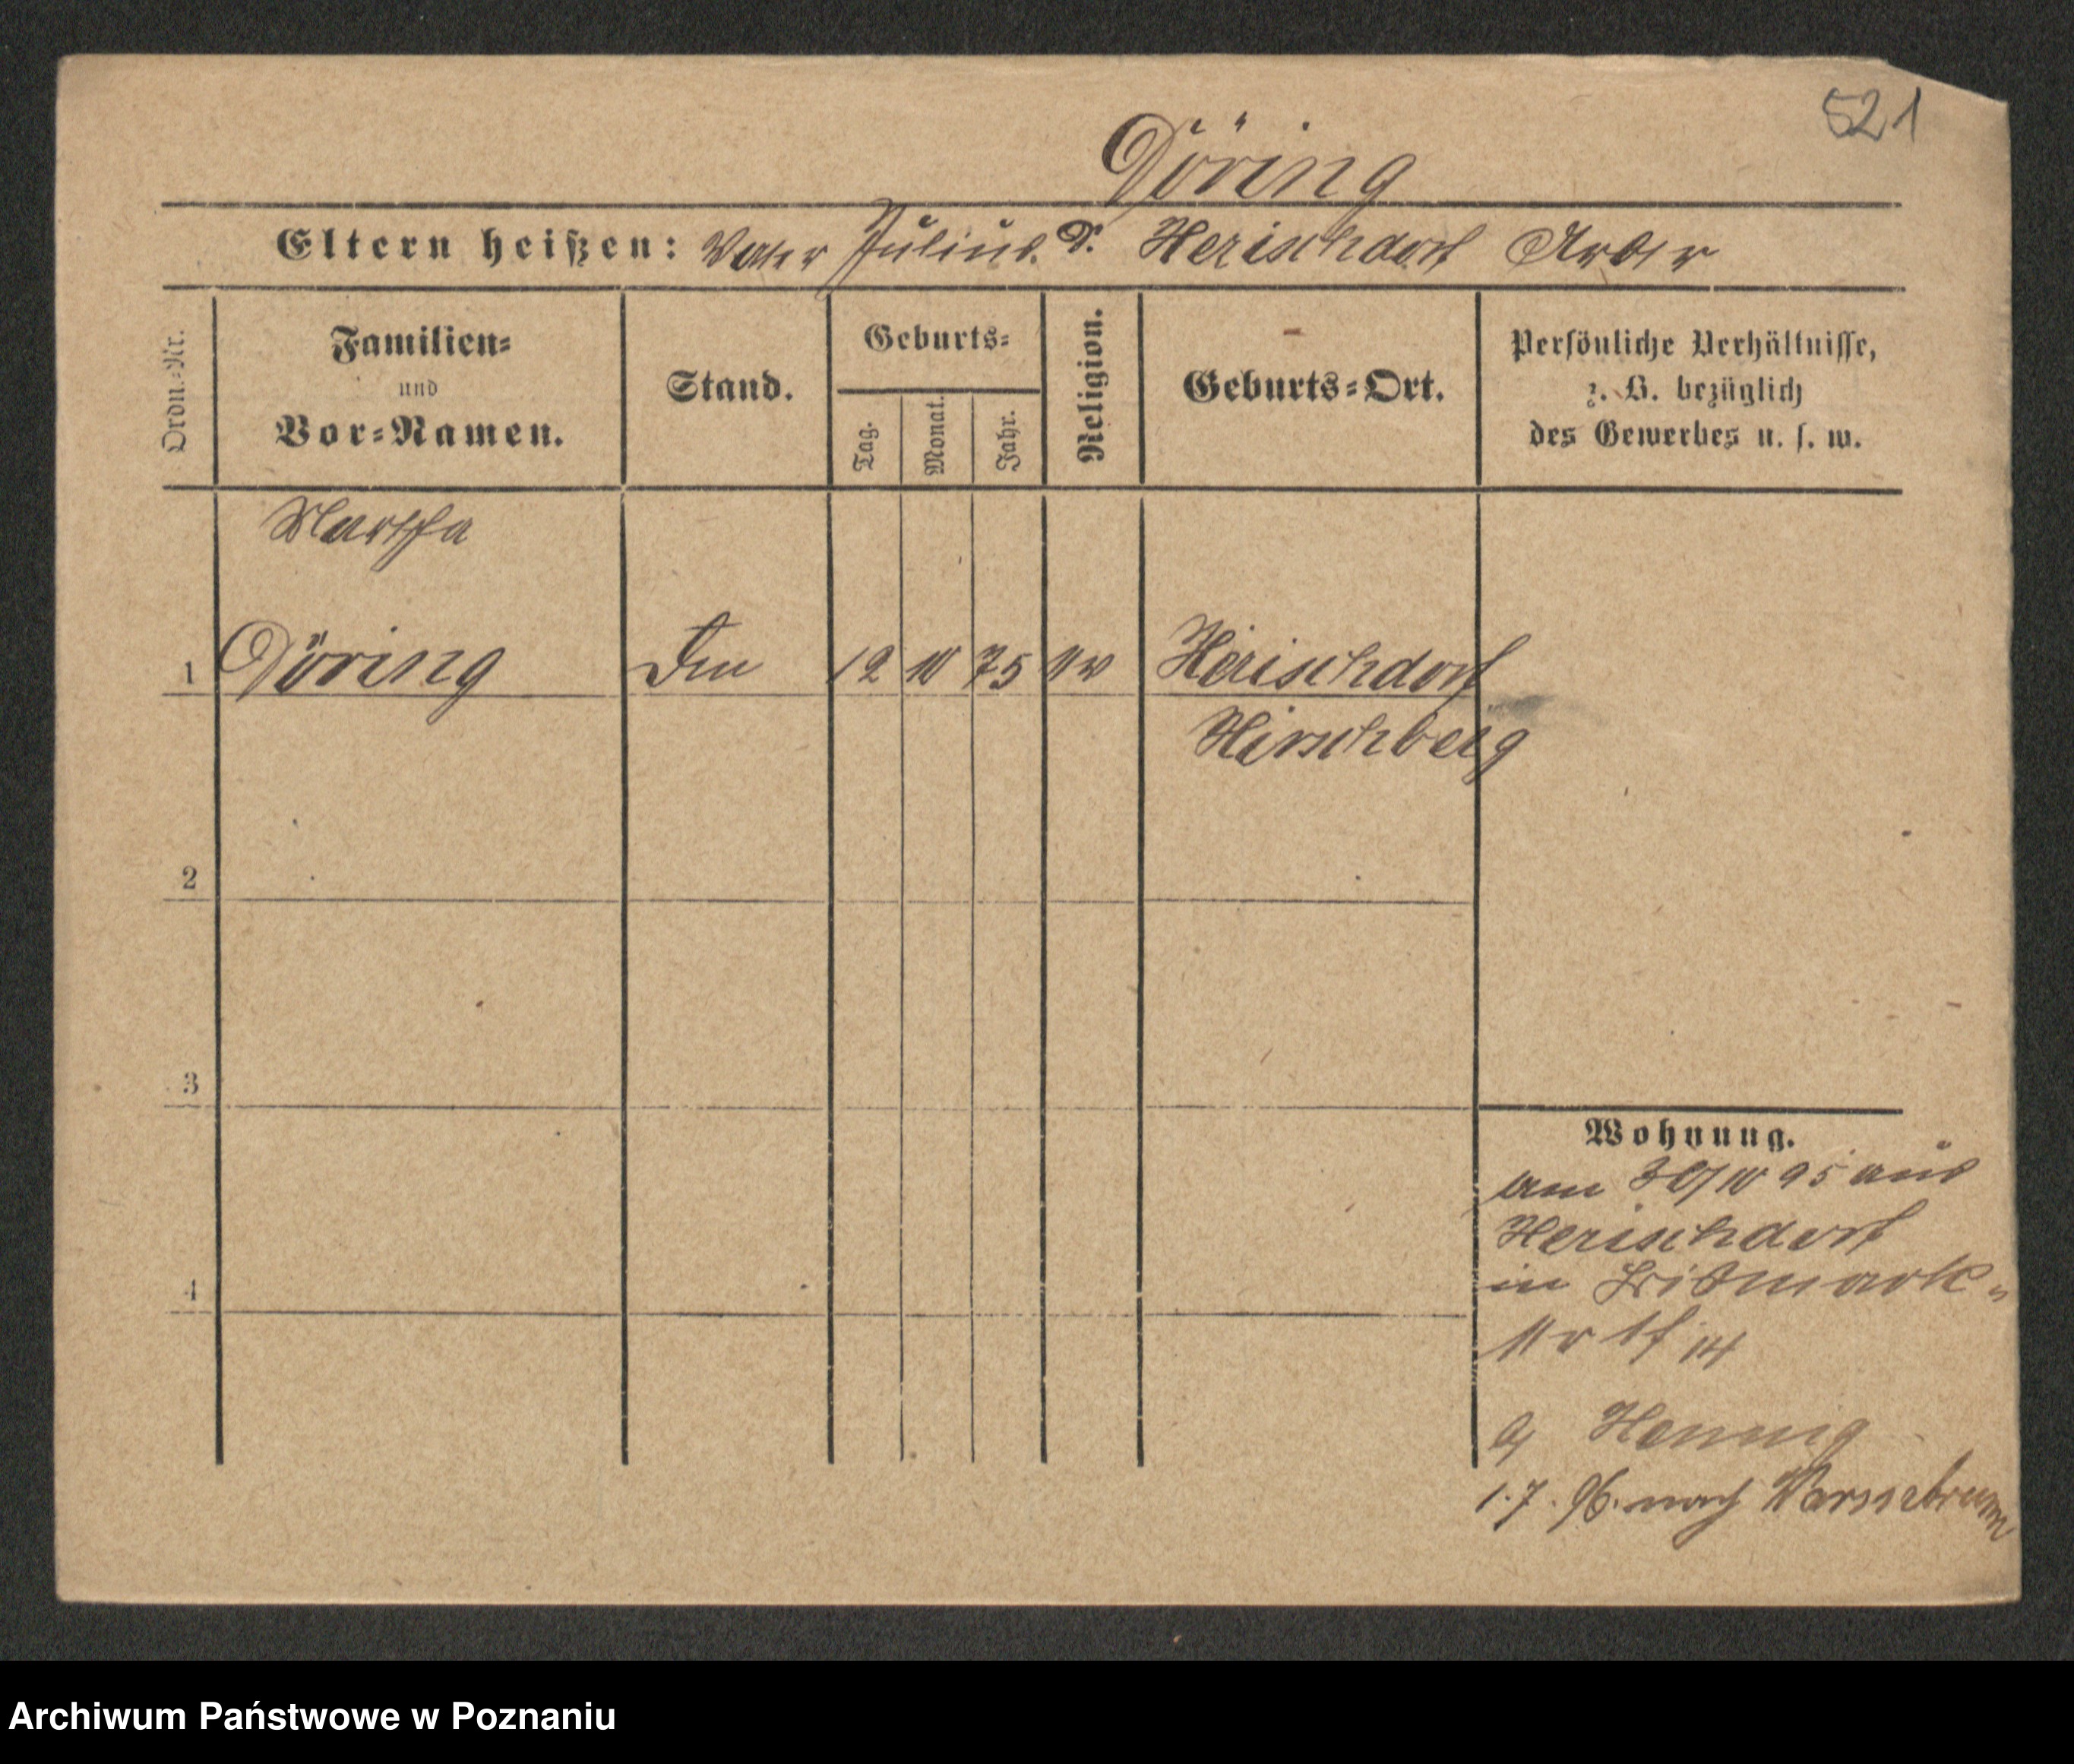 521
Döring
Eltern heißen: Vater Julius D. Herischdorf Arbtr
Ordn.-Nr.
Familien-
und
Vor-Namen.
Stand.
Geburts-
Tag.
Monat.
Jahr.
Religion.
Geburts-Ort.
Persönliche Verhältnisse,
z. B. bezüglich
des Gewerbes u. s. w.
Martha
1 Döring 12 10 75 ev Herischdorf
Hirschberg
2
3
4
Wohnung.
am 30/10 95 aus
Herischdorf
in
14
Hennig
1.7.96. nach Warmbrunn
Archiwum Państwowe w Poznaniu